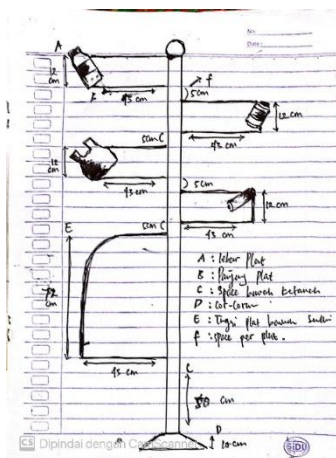 No.
Date:
A
12 cm
B
43 cm
f
5cm
12 cm
43 cm
5cm C
12 cm
43 cm
5 cm
12 cm
43 cm
5cm C
E
cm
43 cm
C
cm
D
10 cm
A : lebar Plat
B : Panjang plat
C : Space bawah ketanah
D : Cor-coran
E : Tinggi plat bawah sendiri
f : space per plat.
SiDU
CS Dipindai dengan CamScanner